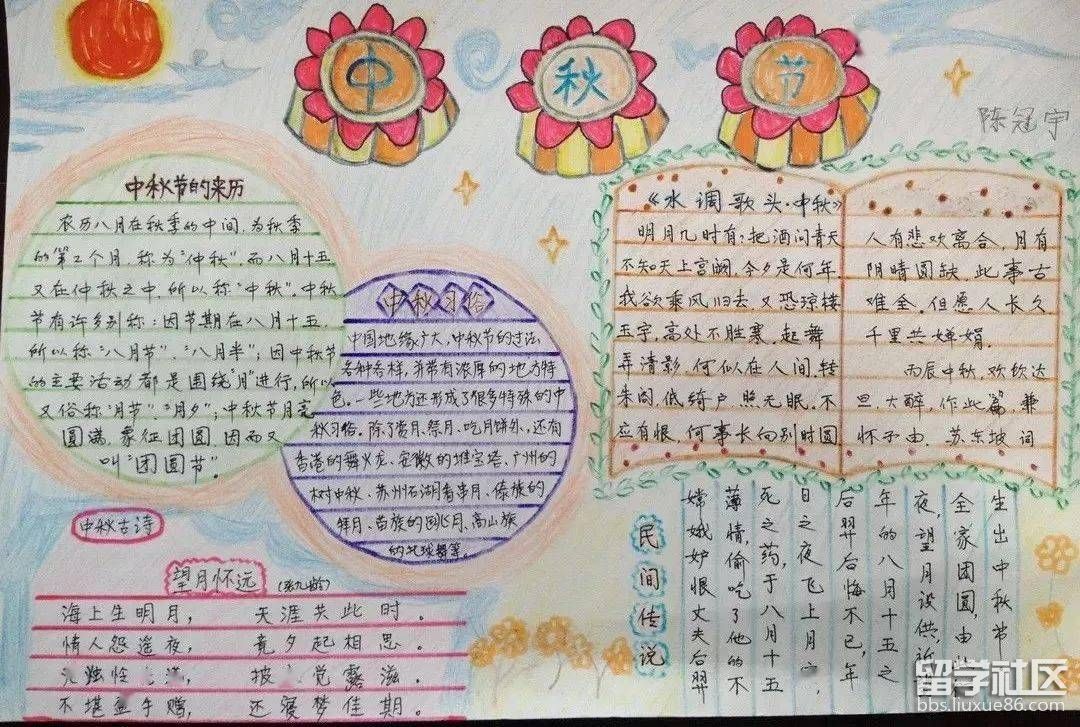 中秋节
陈冠宇
中秋节的来历
农历八月在秋季的中间,为秋季
的第2个月,称为“仲秋”,而八月十五
又在仲秋之中,所以称“中秋”。中秋
节有许多别称:因节期在八月十五
所以称“八月节”、“八月半”;因中秋节
的主要活动都是围绕“月”进行,所以
又俗称“月节”、“月夕”;中秋节月亮
圆满,象征团圆,因而又
叫“团圆节”。
中秋习俗
中国地缘广大,中秋节的过法
各种各样,并带有浓厚的地方特
色。一些地方还形成了很多特殊的中
秋习俗。除了赏月、祭月、吃月饼外,还有
香港的舞火龙、安徽的堆宝塔、广州的
树中秋、苏州石湖看串月、傣族的
拜月、苗族的跳月、高山族
的托球舞等。
《水调歌头·中秋》
明月几时有?把酒问青天
不知天上宫阙,今夕是何年
我欲乘风归去,又恐琼楼
玉宇,高处不胜寒,起舞
弄清影,何似在人间,转
朱阁,低绮户,照无眠。不
应有恨,何事长向别时圆
人有悲欢离合,月有
阴晴圆缺,此事古
难全。但愿人长久
千里共婵娟。
丙辰中秋,欢饮达
旦,大醉,作此篇,兼
怀子由.苏东坡 词
中秋古诗
望月怀远(张九龄)
海上生明月, 天涯共此时。
情人怨遥夜, 竟夕起相思。
烛 披 觉露滋。
不堪盈手赠, 还寝梦佳期。
民间传说
嫦娥妒恨丈夫后羿
薄情,偷吃了他的不
死之药,于八月十五
日之夜飞上月
后羿后悔不已,年
年的八月十五之
夜,望月设供,祈
全家团圆,由
生出中秋节
留学社区
bbs.liuxue86.com